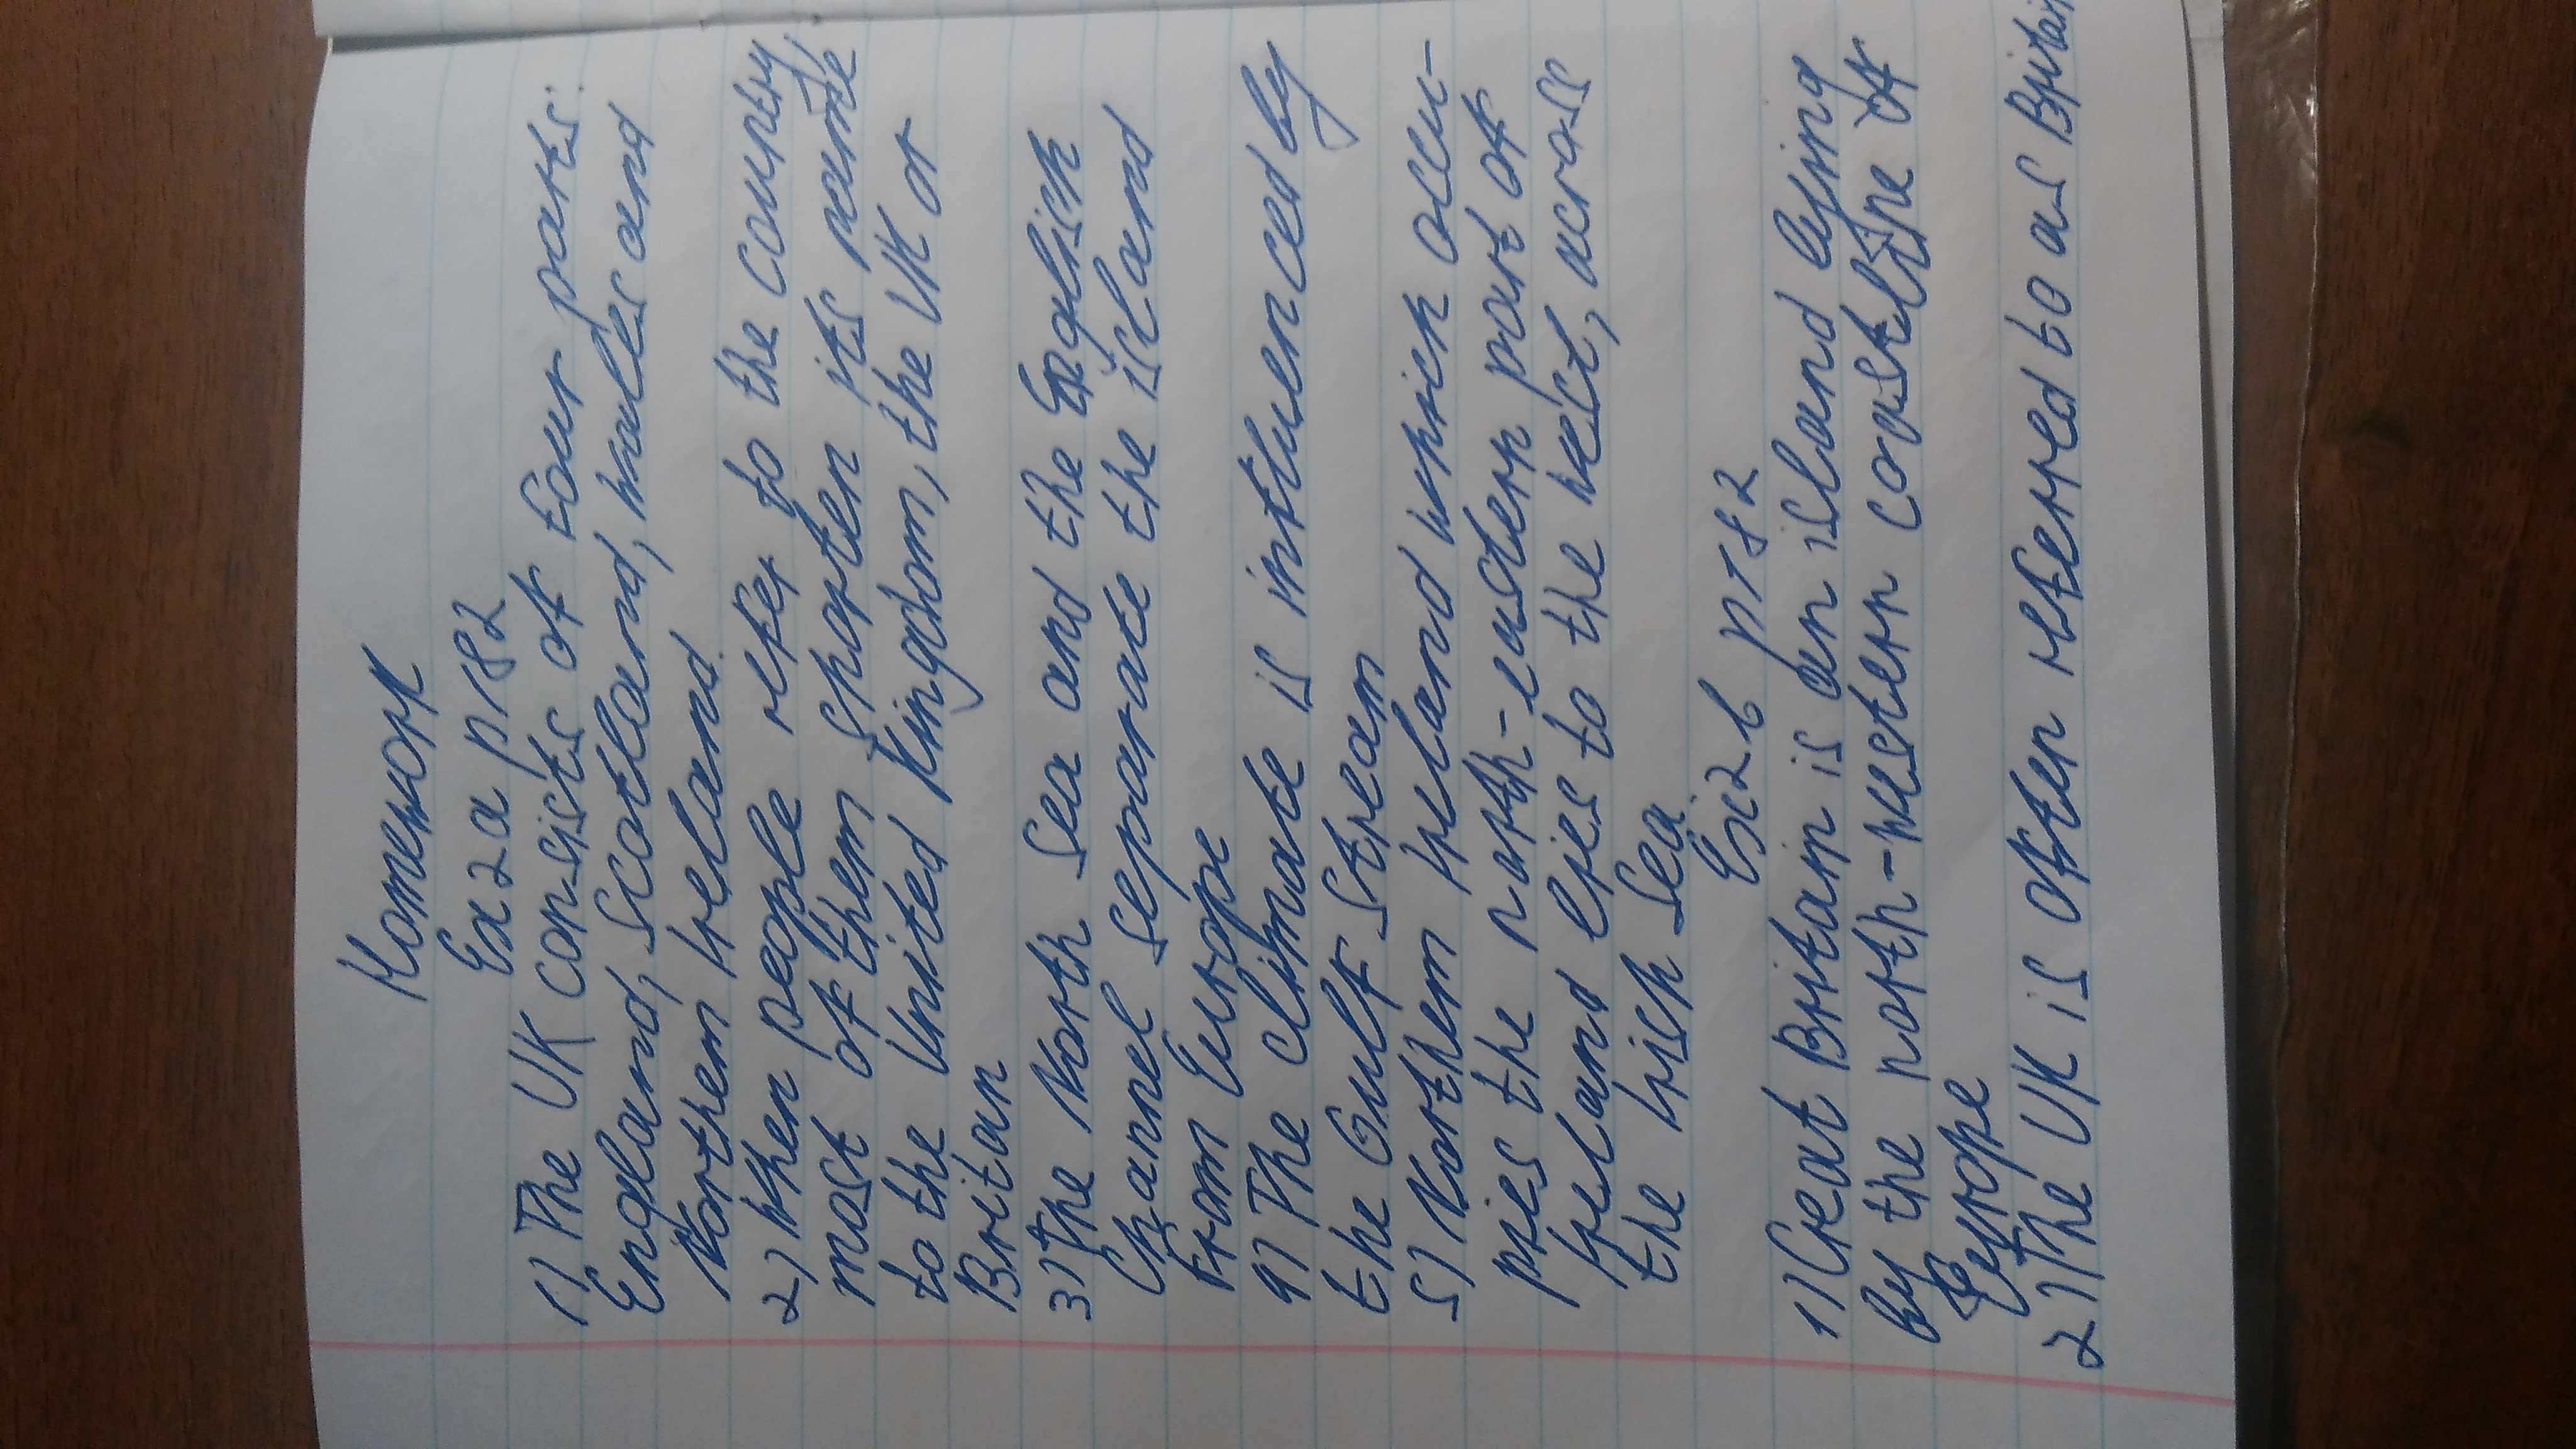 Homework
Ex 2 a p 182
1) The UK consists of four parts:
England, Scotland, Wales and
Northem Ireland.
2) When people refer to the country,
most of them shorten its name
to the United Kingdom, the UK or
Britan
3) The North Sea and the English
Channel separate the island
from Europe
4) The climate is influenced by
the Gulf Stream
5) Northem Ireland which occu-
pies the north-eastern part of
Ireland lies to the west, across
the Irish Sea.
Ex 2 b p 182
1) Great Britain is an island lying
by the north-western coastline of
Europe
2) The UK is often referred to as Britain